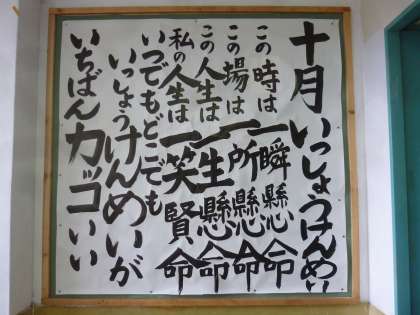 十月 いっしょうけんめい
この時は 一瞬懸命
この場は 一所懸命
この人生は 一生懸命
私の人生は 一笑賢命
いつでもどこでも
いっしょうけんめいが
いちばんカッコいい